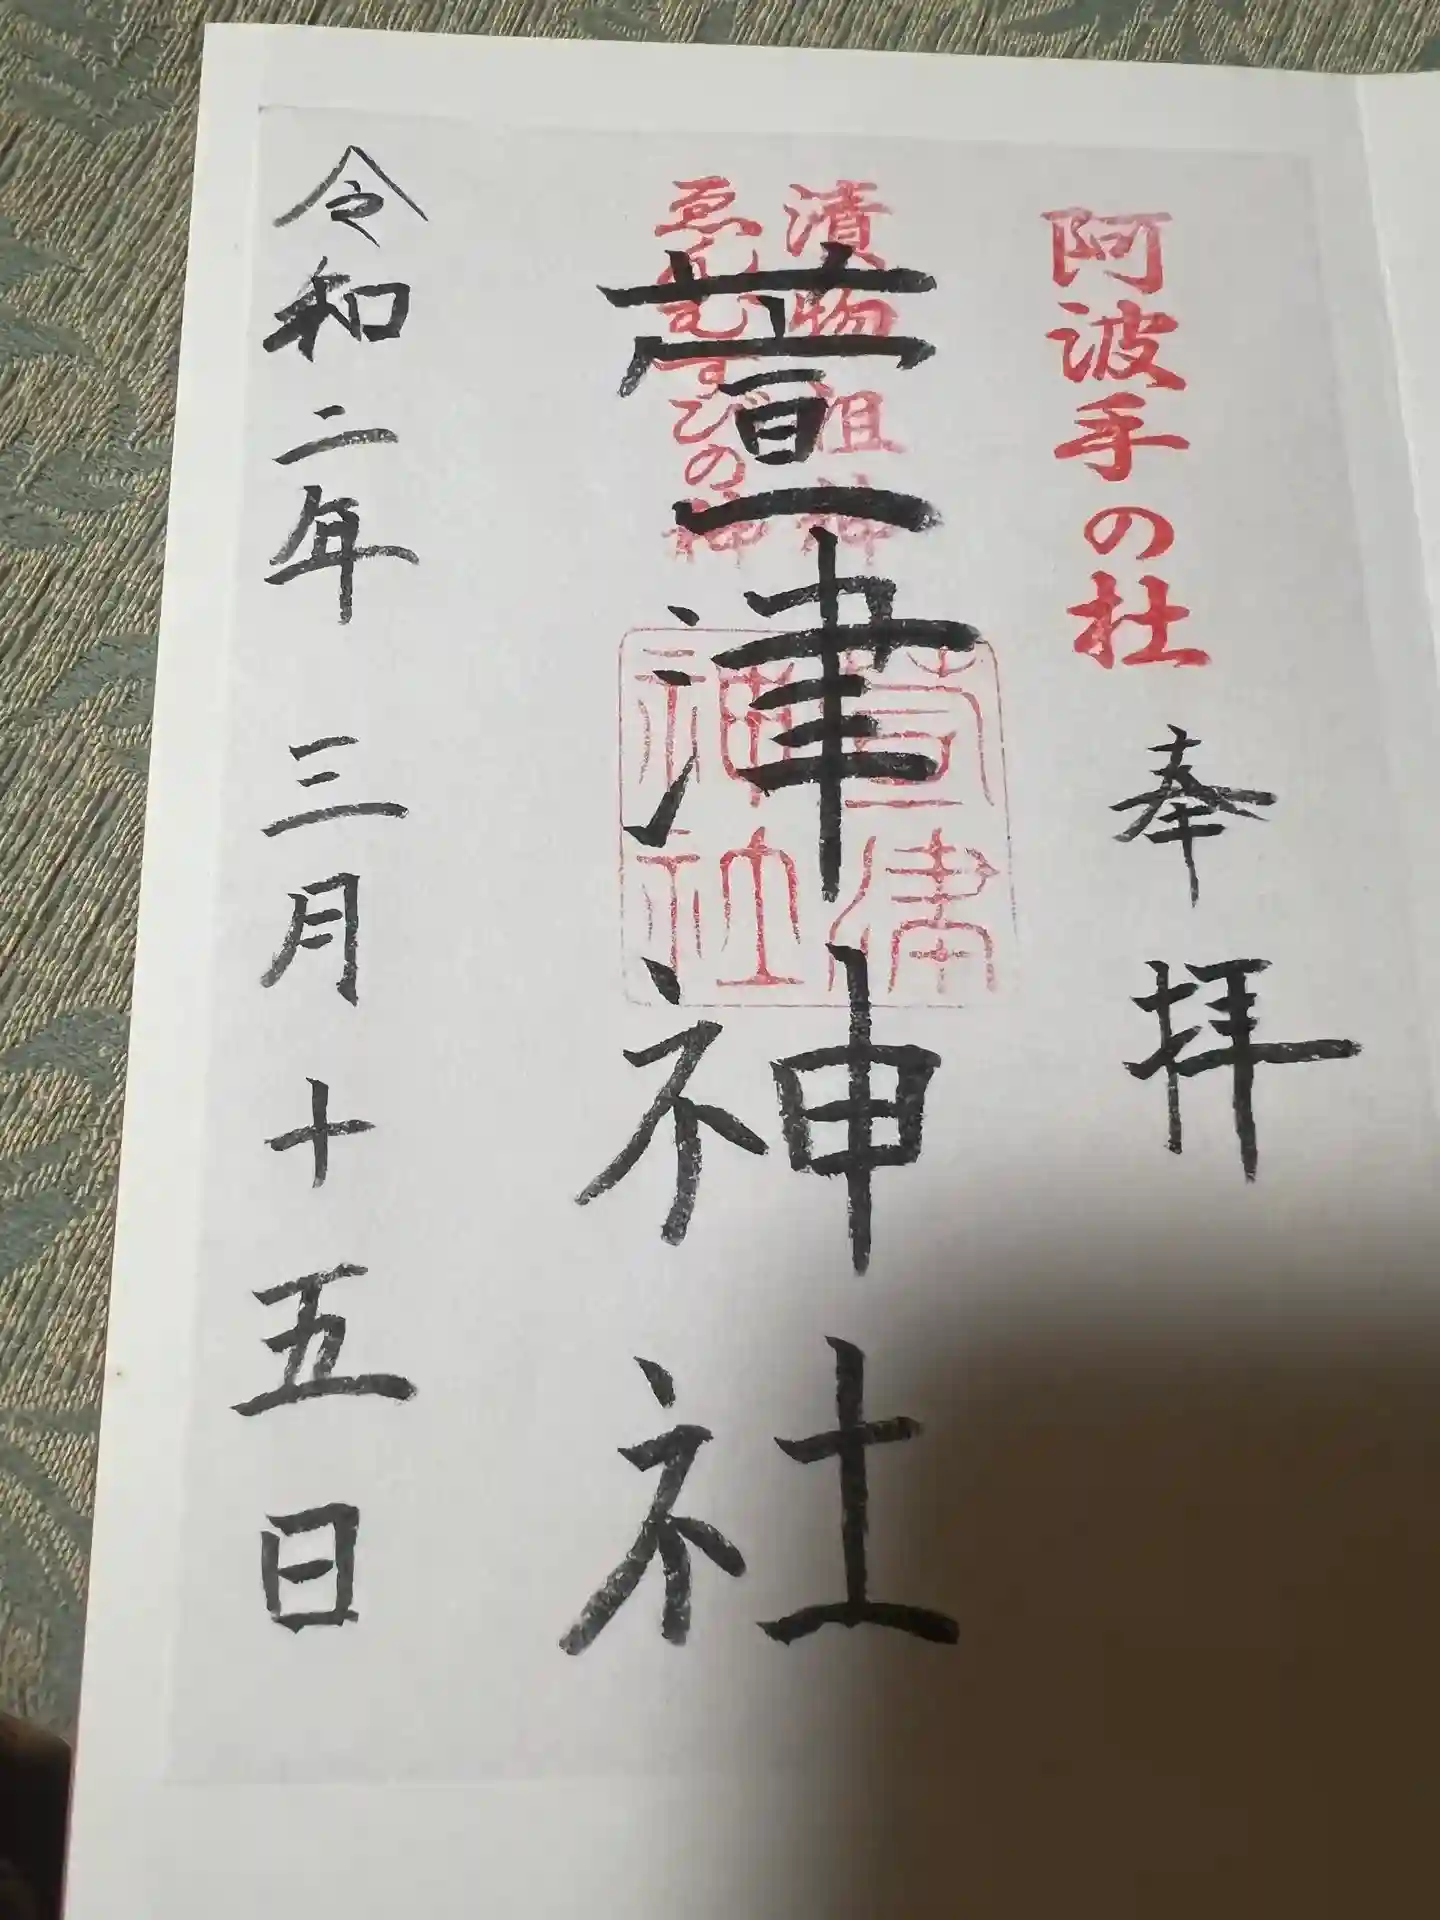 阿波手の杜
奉拝
漬物祖神
ゑんむすびの神
萱津神社
萱津
神社
令和二年三月十五日